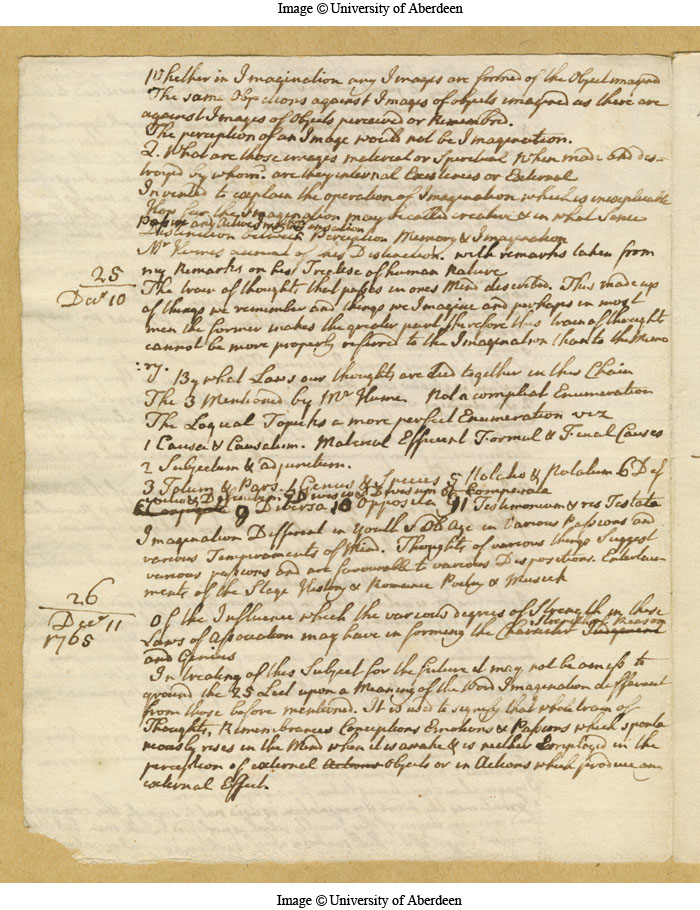 Image © University of Aberdeen
Whether in Imagination any Images are formed of the Object imagined
The same Objections against Images of objects imagined as there are
against Images of Objects perceived or Remembred.
The perception of an Image would not be Imagination.
Q. What are those images material or Spiritual When made and des-
troyed by whom. are they internal Existences or External
Invented to explain the operation of Imagination which is inexplicable
How far the Imagination may be called creative & in what Sence
Passive any Actives
Distinction between Perception Memory & Imagination
Mr Humes account of this Distinction. with remarks taken from
my Remarks on his Treatese of human Nature
25
Decr 10
The train of thoughts that passes in ones Mind describd. This made up
of things we remember and things we Imagine and perhaps in most
men the former makes the greater part therefore this train of thought
cannot be more properly referred to the Imagination than to the Memo
:ry. By what Laws our thoughts are tied together in this Chain
The 3 Mentioned by Mr Hume. Not a compleat Enumeration
The Logical Topicks a more perfect Enumeration viz
1 Causa & Causatum. Material Efficient Formal & Final Causes
2 Subjectum & adjunctum.
3 Totum & Pars. 4 Genus & Species 5 Notatio & Notatum 6 Def
initio & Definitum. 7 Divisio & Divisum 8 Comparata
9 Diversa 10 Opposita 11 Testimonium & res Testata
Imagination Different in Youth & Old Age in Various Passions and
various Temperaments of Mind. Thoughts of various things Suggest
various passions and are favourable to various Dispositions. Entertain-
ments of the Stage History & Romance Poetry & Musick
26
Decr 11
1765
Of the Influence which the various degrees of Strength in these
Laws of Association may have in forming the Character Strength of Reason Judgement
and Genius
In treating of this Subject for the future it may not be amiss to
ground the 25 Lect upon a Meaning of the Word Imagination different
from those before mentioned. It is used to signify that whole train of
Thoughts, Remembrances Conceptions Emotions & Passions which sponta
neously rises in the Mind when it is awake & is neither employed in the
perception of external Actions Objects or in Actions which produce any
external Effect.
Image © University of Aberdeen